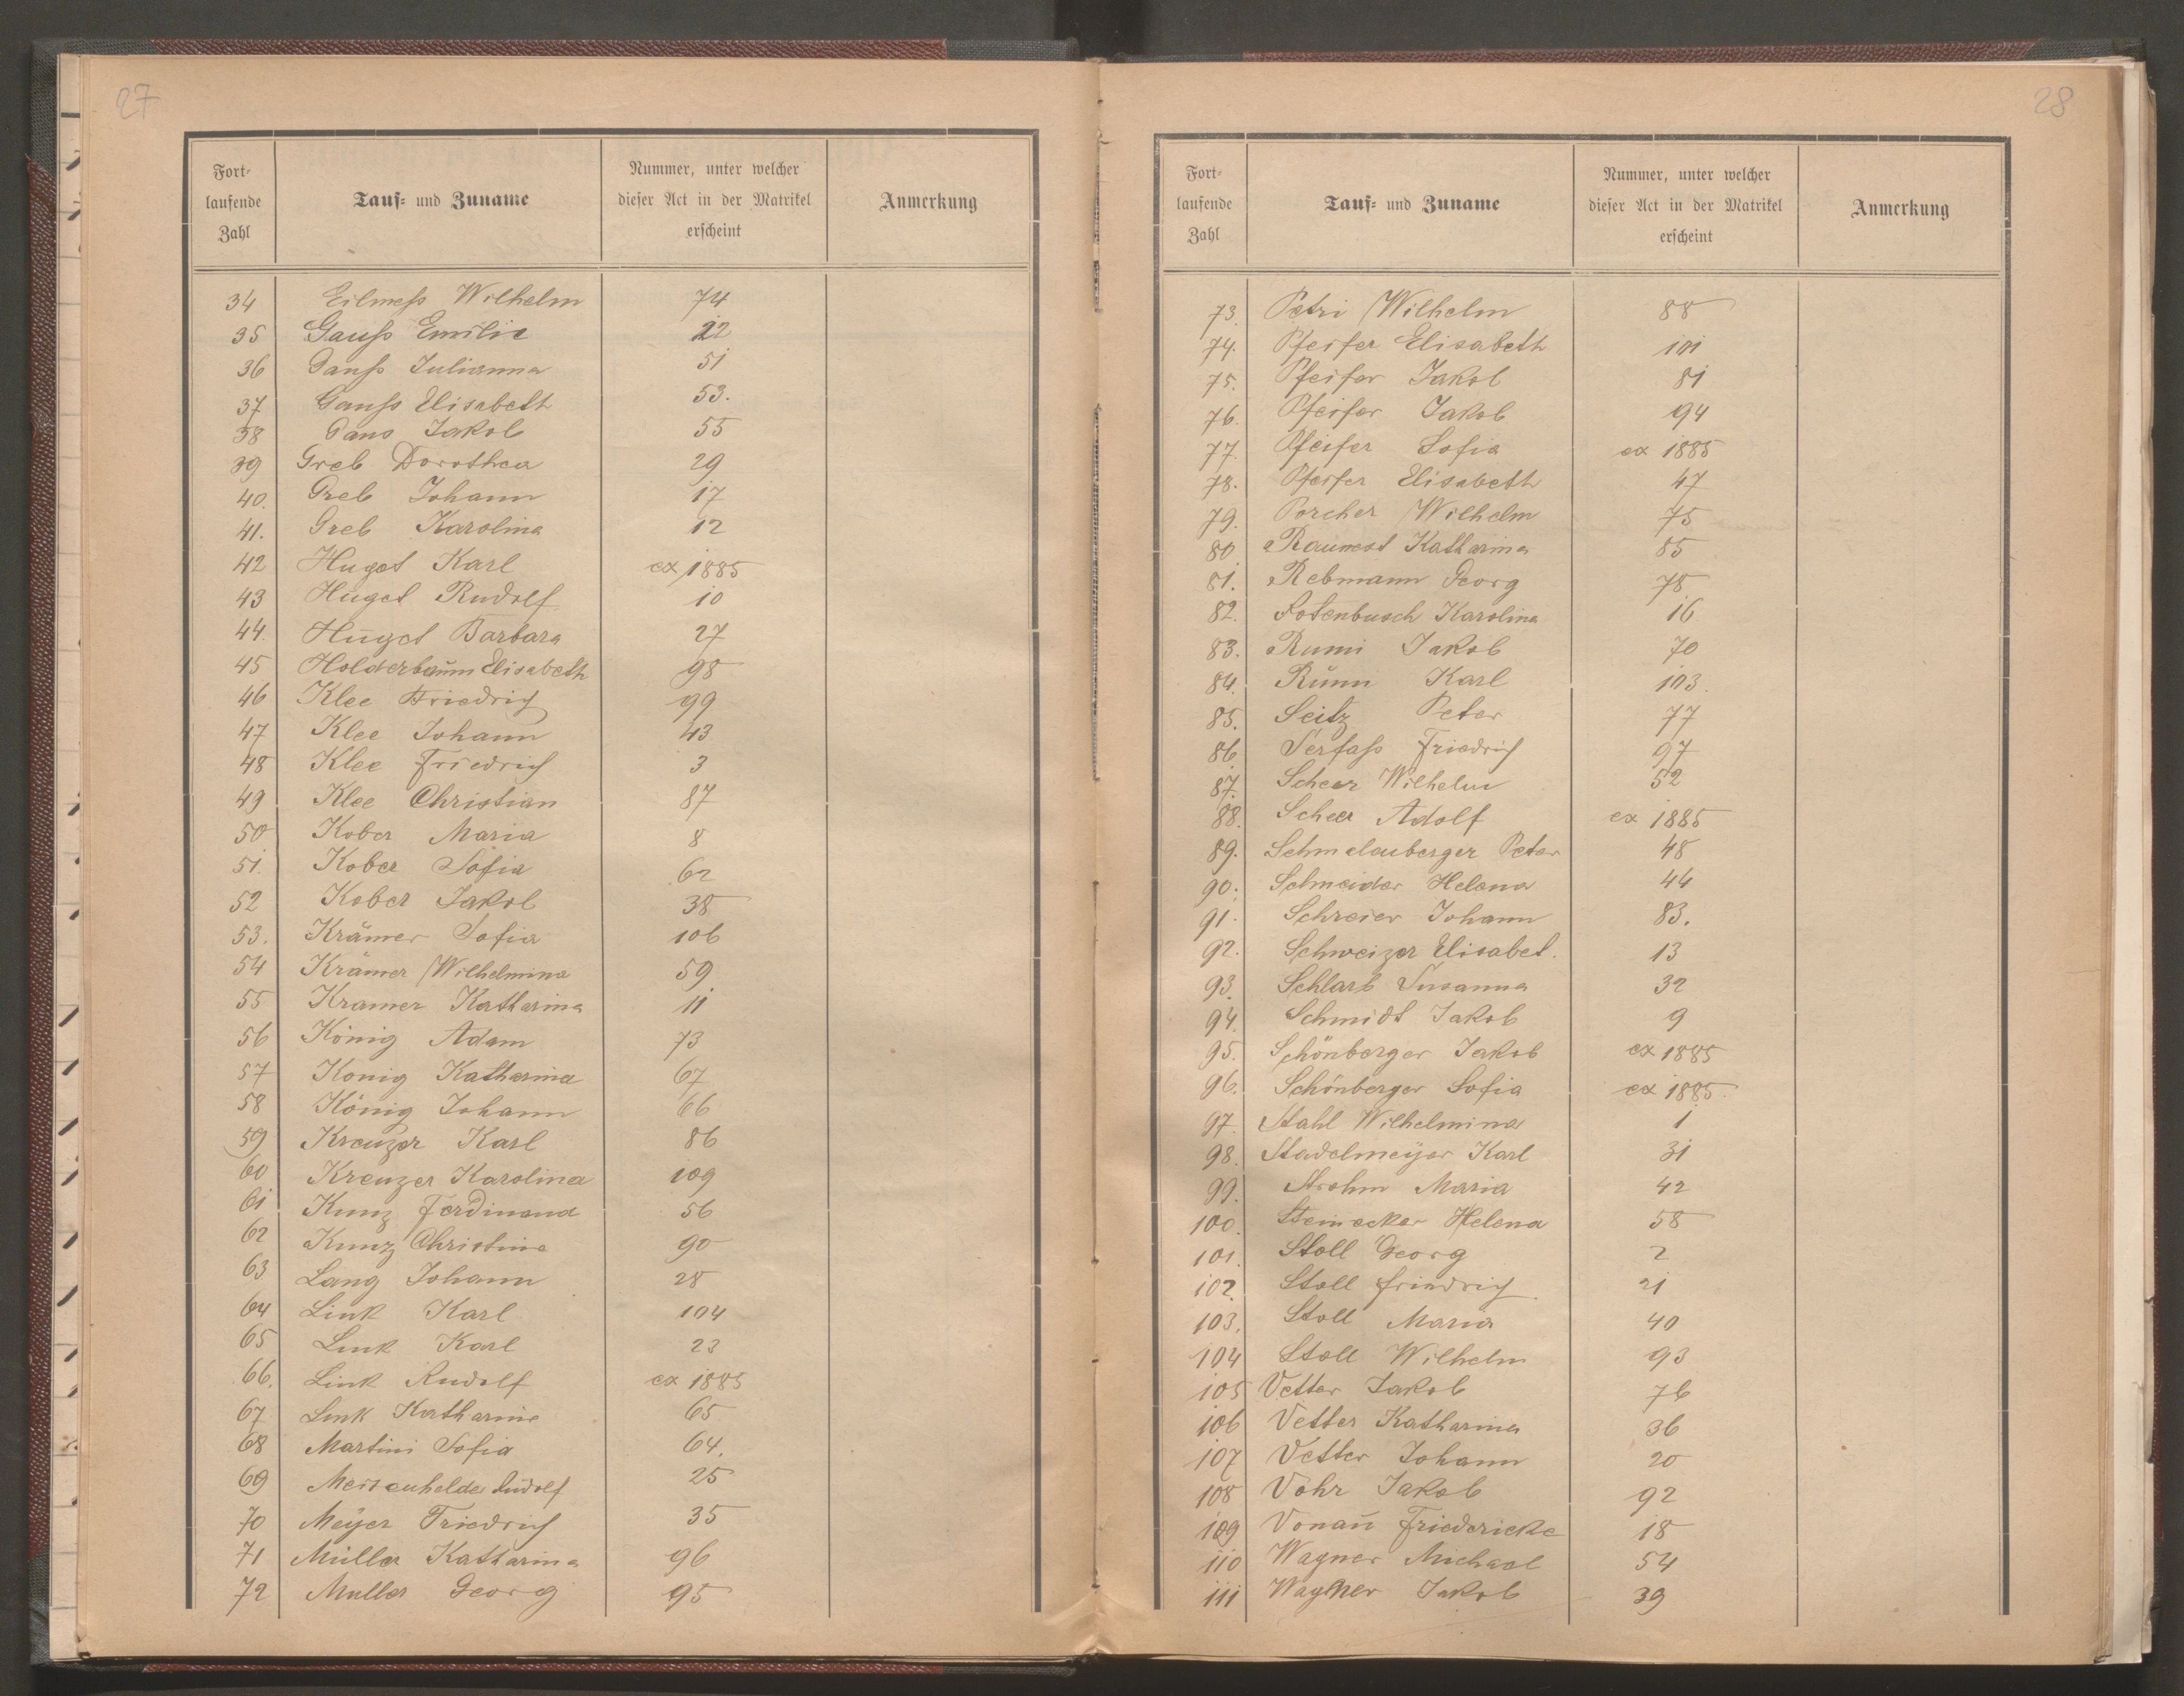 27
Fort-
laufende
Zahl
Tauf- und Zuname
Nummer, unter welcher
dieser Act in der Matrikel
erscheint
Anmerkung
34 Eilmess Wilhelm 74
35 Gauss Emilie 22
36 Gauss Julianna 51
37 Gauss Elisabeth 53.
38 Gaus Jakob 55
39 Greb Dorothea 29
40. Greb Johann 17
41. Greb Karolina 12
42 Huget Karl ex 1885
43 Huget Rudolf 10
44. Huget Barbara 27
45 Holderbaum Elisabeth 98
46 Klee Friedrich 99
47 Klee Johann 43
48 Klee Friedrich 3
49 Klee Christian 87
50. Kober Maria 8
51. Kober Sofia 62
52 Kober Jakob 38
53. Krämer Sofia 106
54 Krämer Wilhelmina 59
55 Kramer Katharina 11
56 König Adam 73
57 Konig Katharina 67
58 König Johann 66
59 Kreuzer Karl 86
60 Kreuzer Karolina 109
61 Kunz Ferdinand 56
62 Kunz Christine 90
63 Lang Johann 28
64 Link Karl 104
65 Link Karl 23
66. Link Rudolf ex 1885
67 Link Katharine 65
68 Martini Sofia 64.
69 Rudolf 25
70 Meÿer Friedrich 35
71 Müller Katharina 96
72 Muller Georg 95
28
Fort-
laufende
Zahl
Tauf- und Zuname
Nummer, unter welcher
dieser Act in der Matrikel
erscheint
Anmerkung
73. Petri Wilhelm 88
74. Pfeifer Elisabeth 101
75. Pfeifer Jakob 81
76. Pfeifer Jakob 94
77. Pfeifer Sofia ex 1885
78. Pfeifer Elisabeth 47
79. Porcher Wilhelm 75
80 Raumest Katharina 85
81. Rebmann Georg 78
82. Rotenbusch Karolina 16
83. Rumi Jakob 70
84. Rumi Karl 103.
85. Seitz Peter 77
86. Serfass Friedrich 97
87. Scheer Wilhelm 52
88. Scheer Adolf ex 1885
89. Schmelenberger Peter 48
90. Schneider Helena 44
91. Schreier Johann 83.
92. Schweizer Elisabet. 13
93. Schlarb Susanna 32
94. Schmidt Jakob 9
95. Schönberger Jakob ex 1885
96. Schönberger Sofia ex 1885.
97. Stahl Wilhelmina 1
98. Stadelmeÿer Karl 31
99. Strohm Maria 42
100. Steinecker Helena 58
101. Stoll Georg 2
102. Stoll Friedrich 21
103. Stoll Maria 40
104 Stoll Wilhelm 93
105 Vetter Jakob 76
106 Vetter Katharina 36
107 Vetter Johann 20
108 Vohr Jakob 92
109 Vonau Friedericke 18
110 Wagner Michael 54
111 Wagner Jakob 39